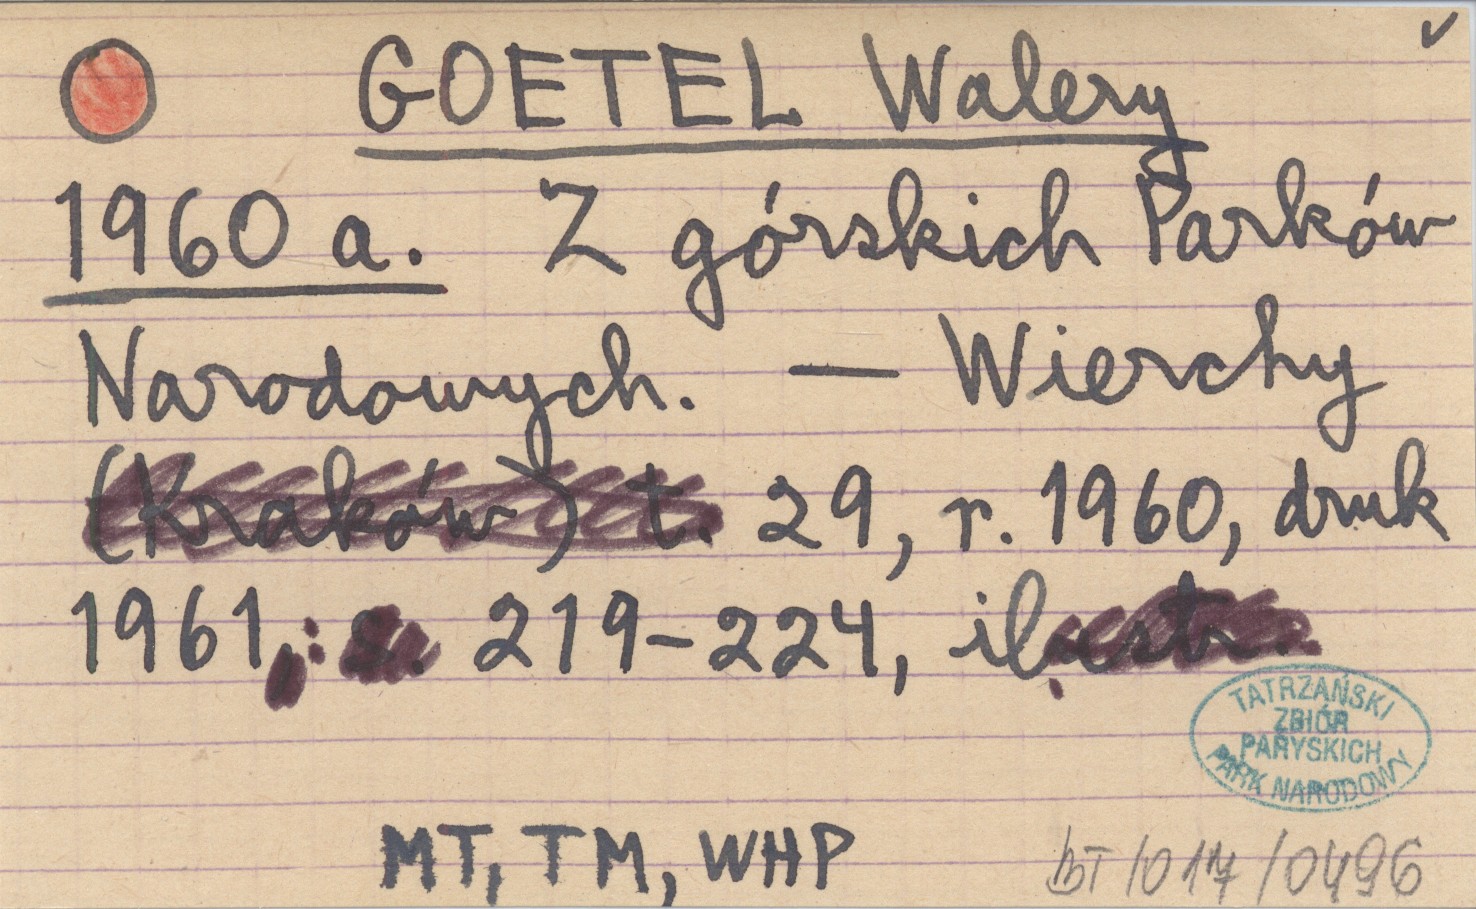 GOETEL Walery
1960 a. Z górskich Parków
Narodowych. — Wierchy
(Kraków) t. 29, r. 1960, druk
1961,: s. 219-224, ilustr.
TATRZAŃSKI
ZBIÓR
PARYSKICH
PARK NARODOWY
MT, TM, WHP
BT/017/0496